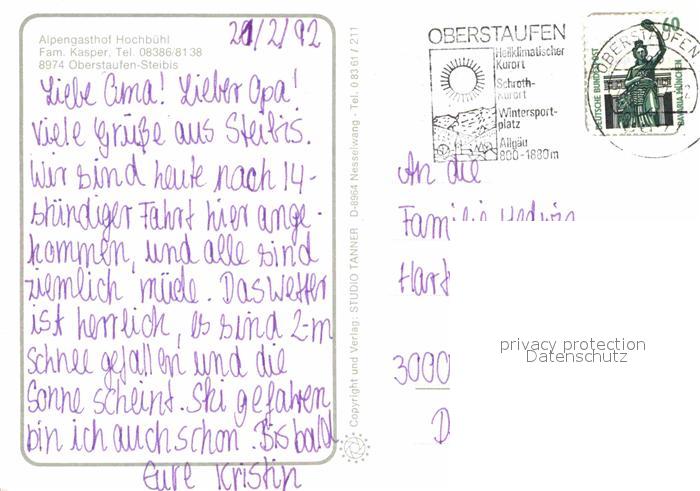 Alpengasthof Hochbühl
Fam. Kasper, Tel. 08386/8138
8974 Oberstaufen-Steibis
21/2/92
Liebe Oma! Lieber Opa!
Viele Grüße aus Steibis.
Wir sind heute nach 14-
stündiger Fahrt hier ange-
kommen, und alle sind
ziemlich müde. Das Wetter
ist herrlich, es sind 2-m
Schnee gefallen und die
Sonne scheint. Ski gefahren
bin ich auch schon. Bis bald
Eure Kristin
Copyright und Verlag: STUDIO TANNER D-8964 Nesselwang - Tel. 0 83 61 / 211
OBERSTAUFEN
Heilklimatischer
Kurort
Schroth-
kurort
Wintersport-
platz
Allgäu
800-1880m
OBERSTAUFEN
60
DEUTSCHE BUNDESPOST
BAVARIA MÜNCHEN
An die
Familie Hedwig
Hart
3000
D
privacy protection
Datenschutz